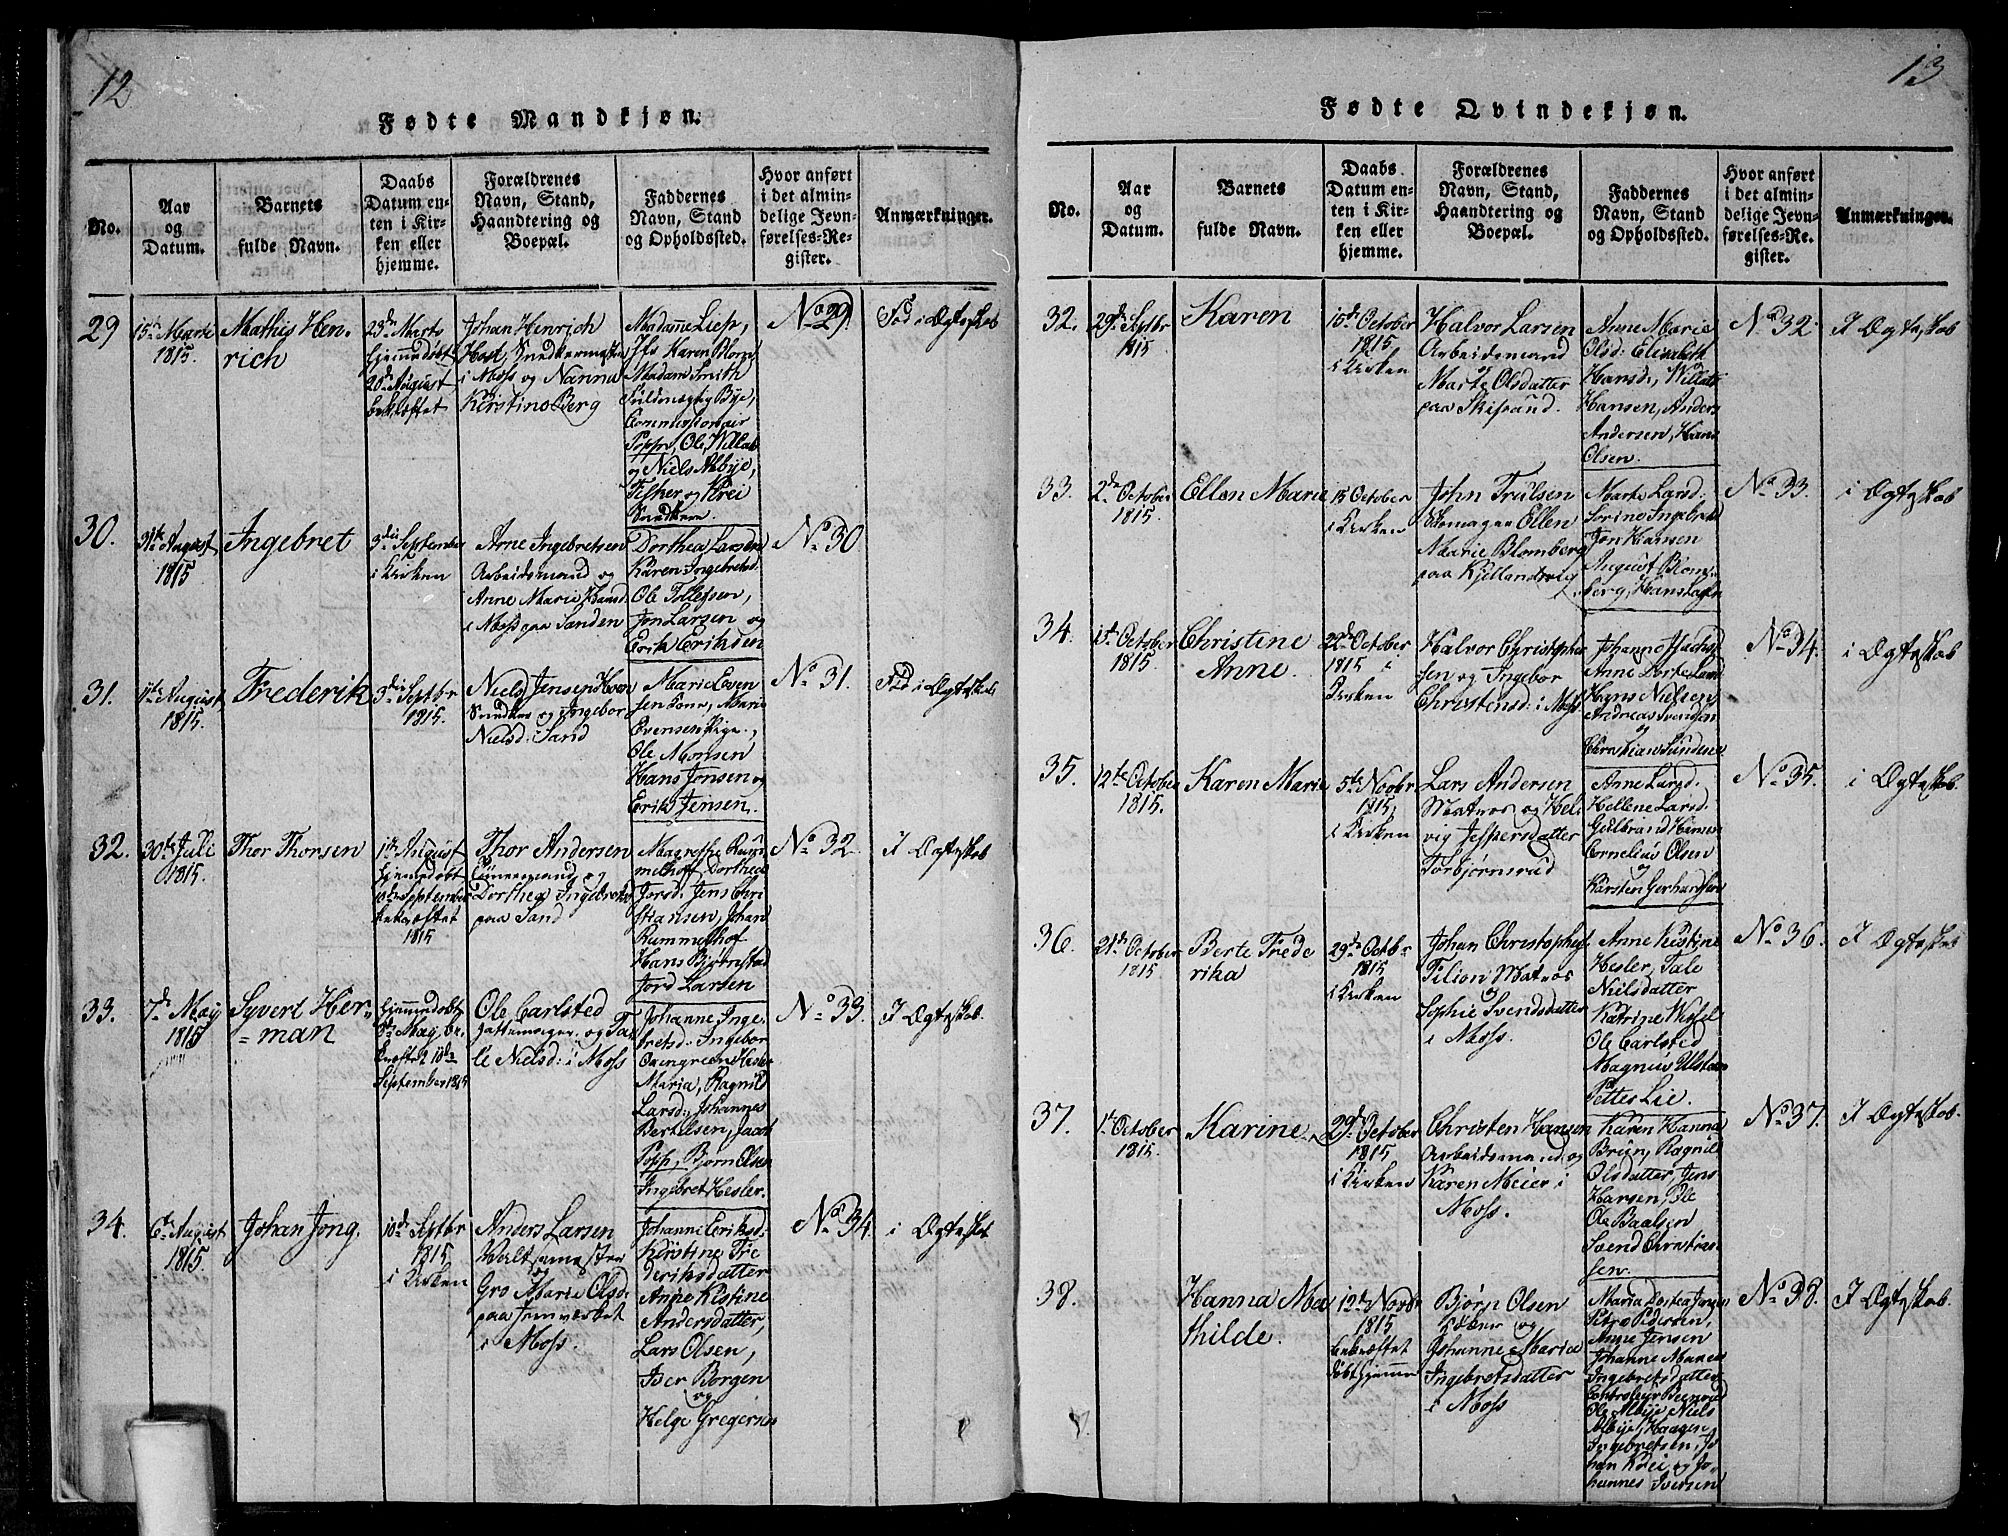 12
Fødte Mandkjøn.
No.
Aar
og
Datum.
Barnets
fulde Navn.
Daabs
Datum en-
ten i Kir-
ken eller
hjemme.
Forældrenes
Navn, Stand,
Haandtering og
Boepæl.
Faddernes
Navn, Stand
og Opholdssted.
Hvor anført
i det almin-
delige Jevn-
førelses-Re-
gister.
Anmærkninger.
29
1815.
Mathis Hen-
rich
23de Marts
hjemmedøbt
20de August
bekræftet
Johan Henrich
i Moss og Nanna
Kirstine Berg
Madame Liep,
Madam Smith
Bye,
Popp, Ole,
og Niels Albye,
Fisher og Krei
No 29.
Fød i Ægteskab
30.
31te August
1815
Ingebret
3die September
i Kirken
Arne Ingebretsen
Arbeidsmand og
Anne Marie Hansd.
i Moss paa Sanden
Dorthea Larsen
Karen Ingebretsd.
Ole Tollefsen,
Jon Larsen og
Erik Eriksen
No 30
31.
August
1815.
Frederik
3die Septbr
1815.
Niels Jensen
Snedker og Ingebor
Nielsd: i Sand
Marie Even
sen Kone, Marie
Evensen Pige,
Ole Monsen
Hans Jonsen og
Erik Jensen.
No 31.
Fød i Ægteskab
32.
30te Juli
1815.
Thor Thorsen
August
hjemmedøbt
September
bekræftet
1815
Thor Andersen
og
Dorthea Ingebretsd
paa Sand
Magrethe Rum
melhoff Dorthea
Jorsd: Jens Chri
stiansen, Johan
Rummelhof
Hans Bjørnstad
Jord Larsen
No 32.
I Ægteskab
33.
7de May
1815
Syvert Her-
man
hjemmedøbt
8de May be
kræftet 10de
September 1815
Ole Carlsted
og Ta
le Nielsd: i Moss
Johanne Inge-
bretsd: Ingebor
Maria, Ragnild
Larsd:, Johannes
Bertelsen, Jacob
Popp, Bjørn Olsen
Ingebret Hesler.
No 33.
I Ægteskab.
34.
6te August
1815.
Johan Jong.
10de Septbr
1815
i Kirken
Anders Larsen
og
Gro Marie Olsd:
paa Jernværket
i Moss.
Johanne Eriksd:
Kirstine Fre
deriksdatter
Anne Kistine
Andersdatter,
Lars Olsen,
Iver Borgen
og
Helge Gregersen
No 34.
i Ægteskab
13
Fødte Qvindekjøn.
No.
Aar
og
Datum.
Barnets
fulde Navn.
Daabs
Datum en-
ten i Kir-
ken eller
hjemme.
Forældrenes
Navn, Stand,
Haandtering og
Boepæl.
Faddernes
Navn, Stand
og Opholdssted.
Hvor anført
i det almin-
delige Jevn-
førelses-Re-
gister.
Anmærkninger.
32.
29de Septbr
1815
Karen
10de October
1815.
i Kirken
Halvor Larsen
Arbeidsmand
og
Marte Olsdatter
paa Skisrand.
Anne Marie
Olsd: Elisabeth
Hansd:,
Hansen, Anders
Andersen, Hans
Olsen.
No 32.
I Ægteskab
33.
2de October
1815.
Ellen Marie
15 October
i Kirken
John Trulsen
Skomager Ellen
Marie Blomberg
paa Kjellandsvig
Marte Larsd:
Sorine Ingebret
Jon Hansen
August Blom-
berg, Hans
No 33.
i Ægteskab
34.
1te October
1815.
Christine
Anne
22de October
1815 i
Kirken
Halvor Christopher
sen og Ingebor
Christensd: i Moss
Johanne
Anne Dorte
Hans Nielsen
Andreas Svendsen
og
Christian
No 34.
i Ægteskab
35.
12te October
1815.
Karen Marie
5te Novbr
1815,
i Kirken
Lars Andersen
Matros og Hel
vig Jespersdatter
Torbjørnsrud
Anne Larsd.
Hellene Larsd.
Gulbrand Hansen
Cornelius Olsen
og
Karsten Gerhardsen
No 35.
i Ægteskab.
36.
21de October
1815
Berte Frede
rika
29de Octbr
1815
i Kirken
Johan Christopher
Tilion Matros
og
Sophie Svendsdatter
i Moss.
Anne Kistine
Hesler, Tale
Nielsdatter
Katrine
Ole Carlsted
Magnus
Petter Lie.
No 36.
I Ægteskab
37.
1te October
1815.
Karine
29de October
1815
i Kirken
Christen Hansen
Arbeidsmand og
Karen Meier i
Moss.
Karen Hanna
Brun, Ragnild
Olsdatter, Jens
Hansen, Ole
Ole Baalsen
Svend Christian
sen.
No 37.
I Ægteskab.
38.
Hanna Ma
thilde.
12te Novbr
1815
bekræftet
døbt hjemme
Bjørn Olsen
og
Johanne Maria
Ingebretsdatter
i Moss
Maria Dortea
Pedersen,
Anne Jensen
Johanne Maria
Ingebretsdatter
Controleur
Ole Albye Niels
Albye, Haagen
Ingebretsen, Jo
han Krei og Jo-
hannes Iversen
No 38.
I Ægteskab.